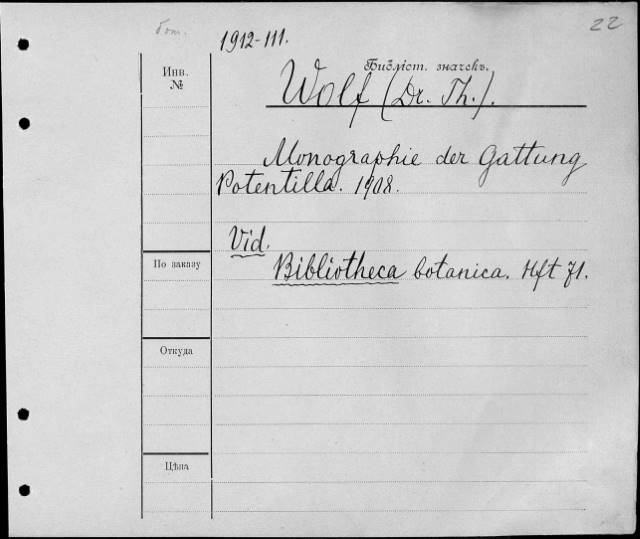 бот.
22
1912-111.
Инв.
№
Библіот. значекъ.
Wolf (Dr. Th.).
Monographie der Gattung
Potentilla. 1908.
Vid.
Bibliotheca botanica. Hft 71.
По заказу
Откуда
Цѣна